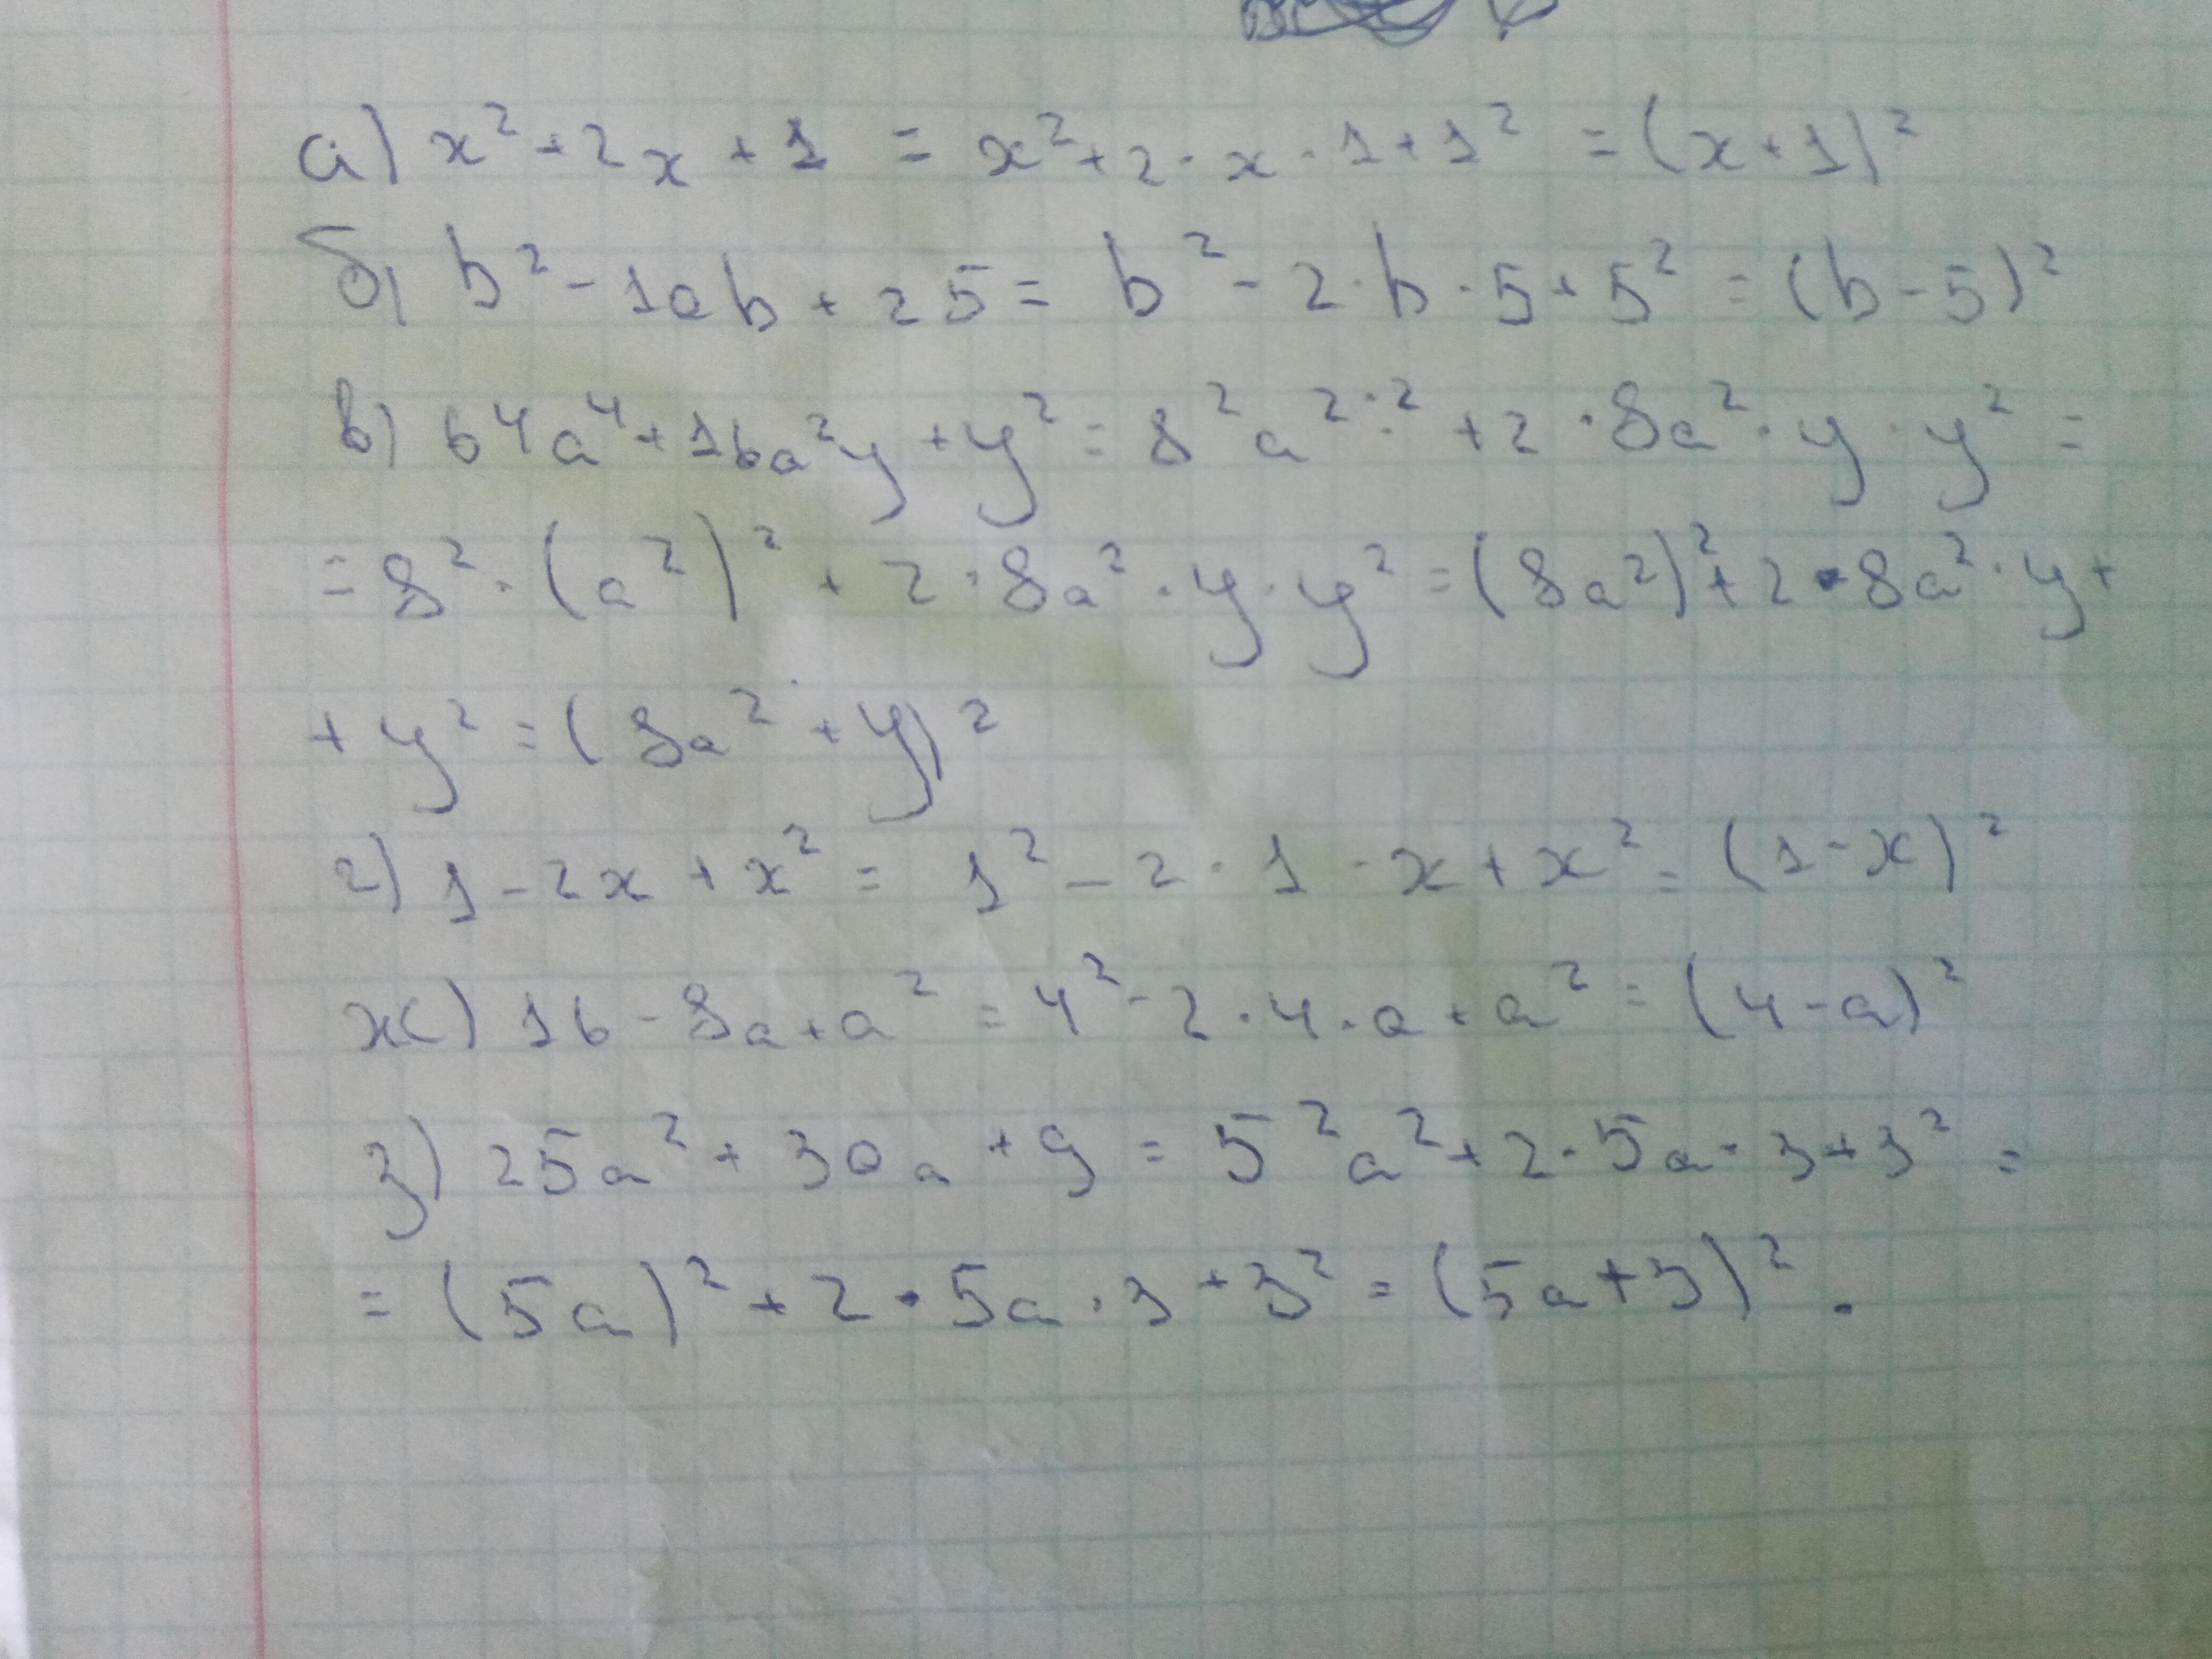 а) x² + 2x + 1 = x² + 2 · x · 1 + 1² = (x + 1)²
б) b² - 10b + 25 = b² - 2 · b · 5 + 5² = (b - 5)²
в) 64a⁴ + 16a²y + y² = 8²a²˙² + 2 · 8a² · y · y² =
= 8² · (a²)² + 2 · 8a² · y · y² = (8a²)² + 2 · 8a² · y +
+ y² = (8a² + y)²
г) 1 - 2x + x² = 1² - 2 · 1 · x + x² = (1 - x)²
ж) 16 - 8a + a² = 4² - 2 · 4 · a + a² = (4 - a)²
з) 25a² + 30a + 9 = 5²a² + 2 · 5a · 3 + 3² =
= (5a)² + 2 · 5a · 3 + 3² = (5a + 3)² .